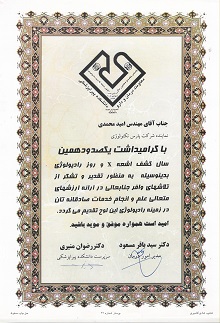 جناب آقای مهندس امید محمدی
نماینده شرکت پارس تکنولوژی
با گرامیداشت یکصدودهمین
سال کشف اشعه X و روز رادیولوژی
بدینوسیله به منظور تقدیر و تشکر از
تلاشهای وافر جنابعالی در ارائه ارزشهای
متعالی علم و انجام خدمات صادقانه تان
در زمینه رادیولوژی این لوح تقدیم می گردد.
امید است همواره موفق و موید باشید.
دکتر سید باقر مسعود
دکتر رضوان منیری
سرپرست دانشکده پیراپزشکی